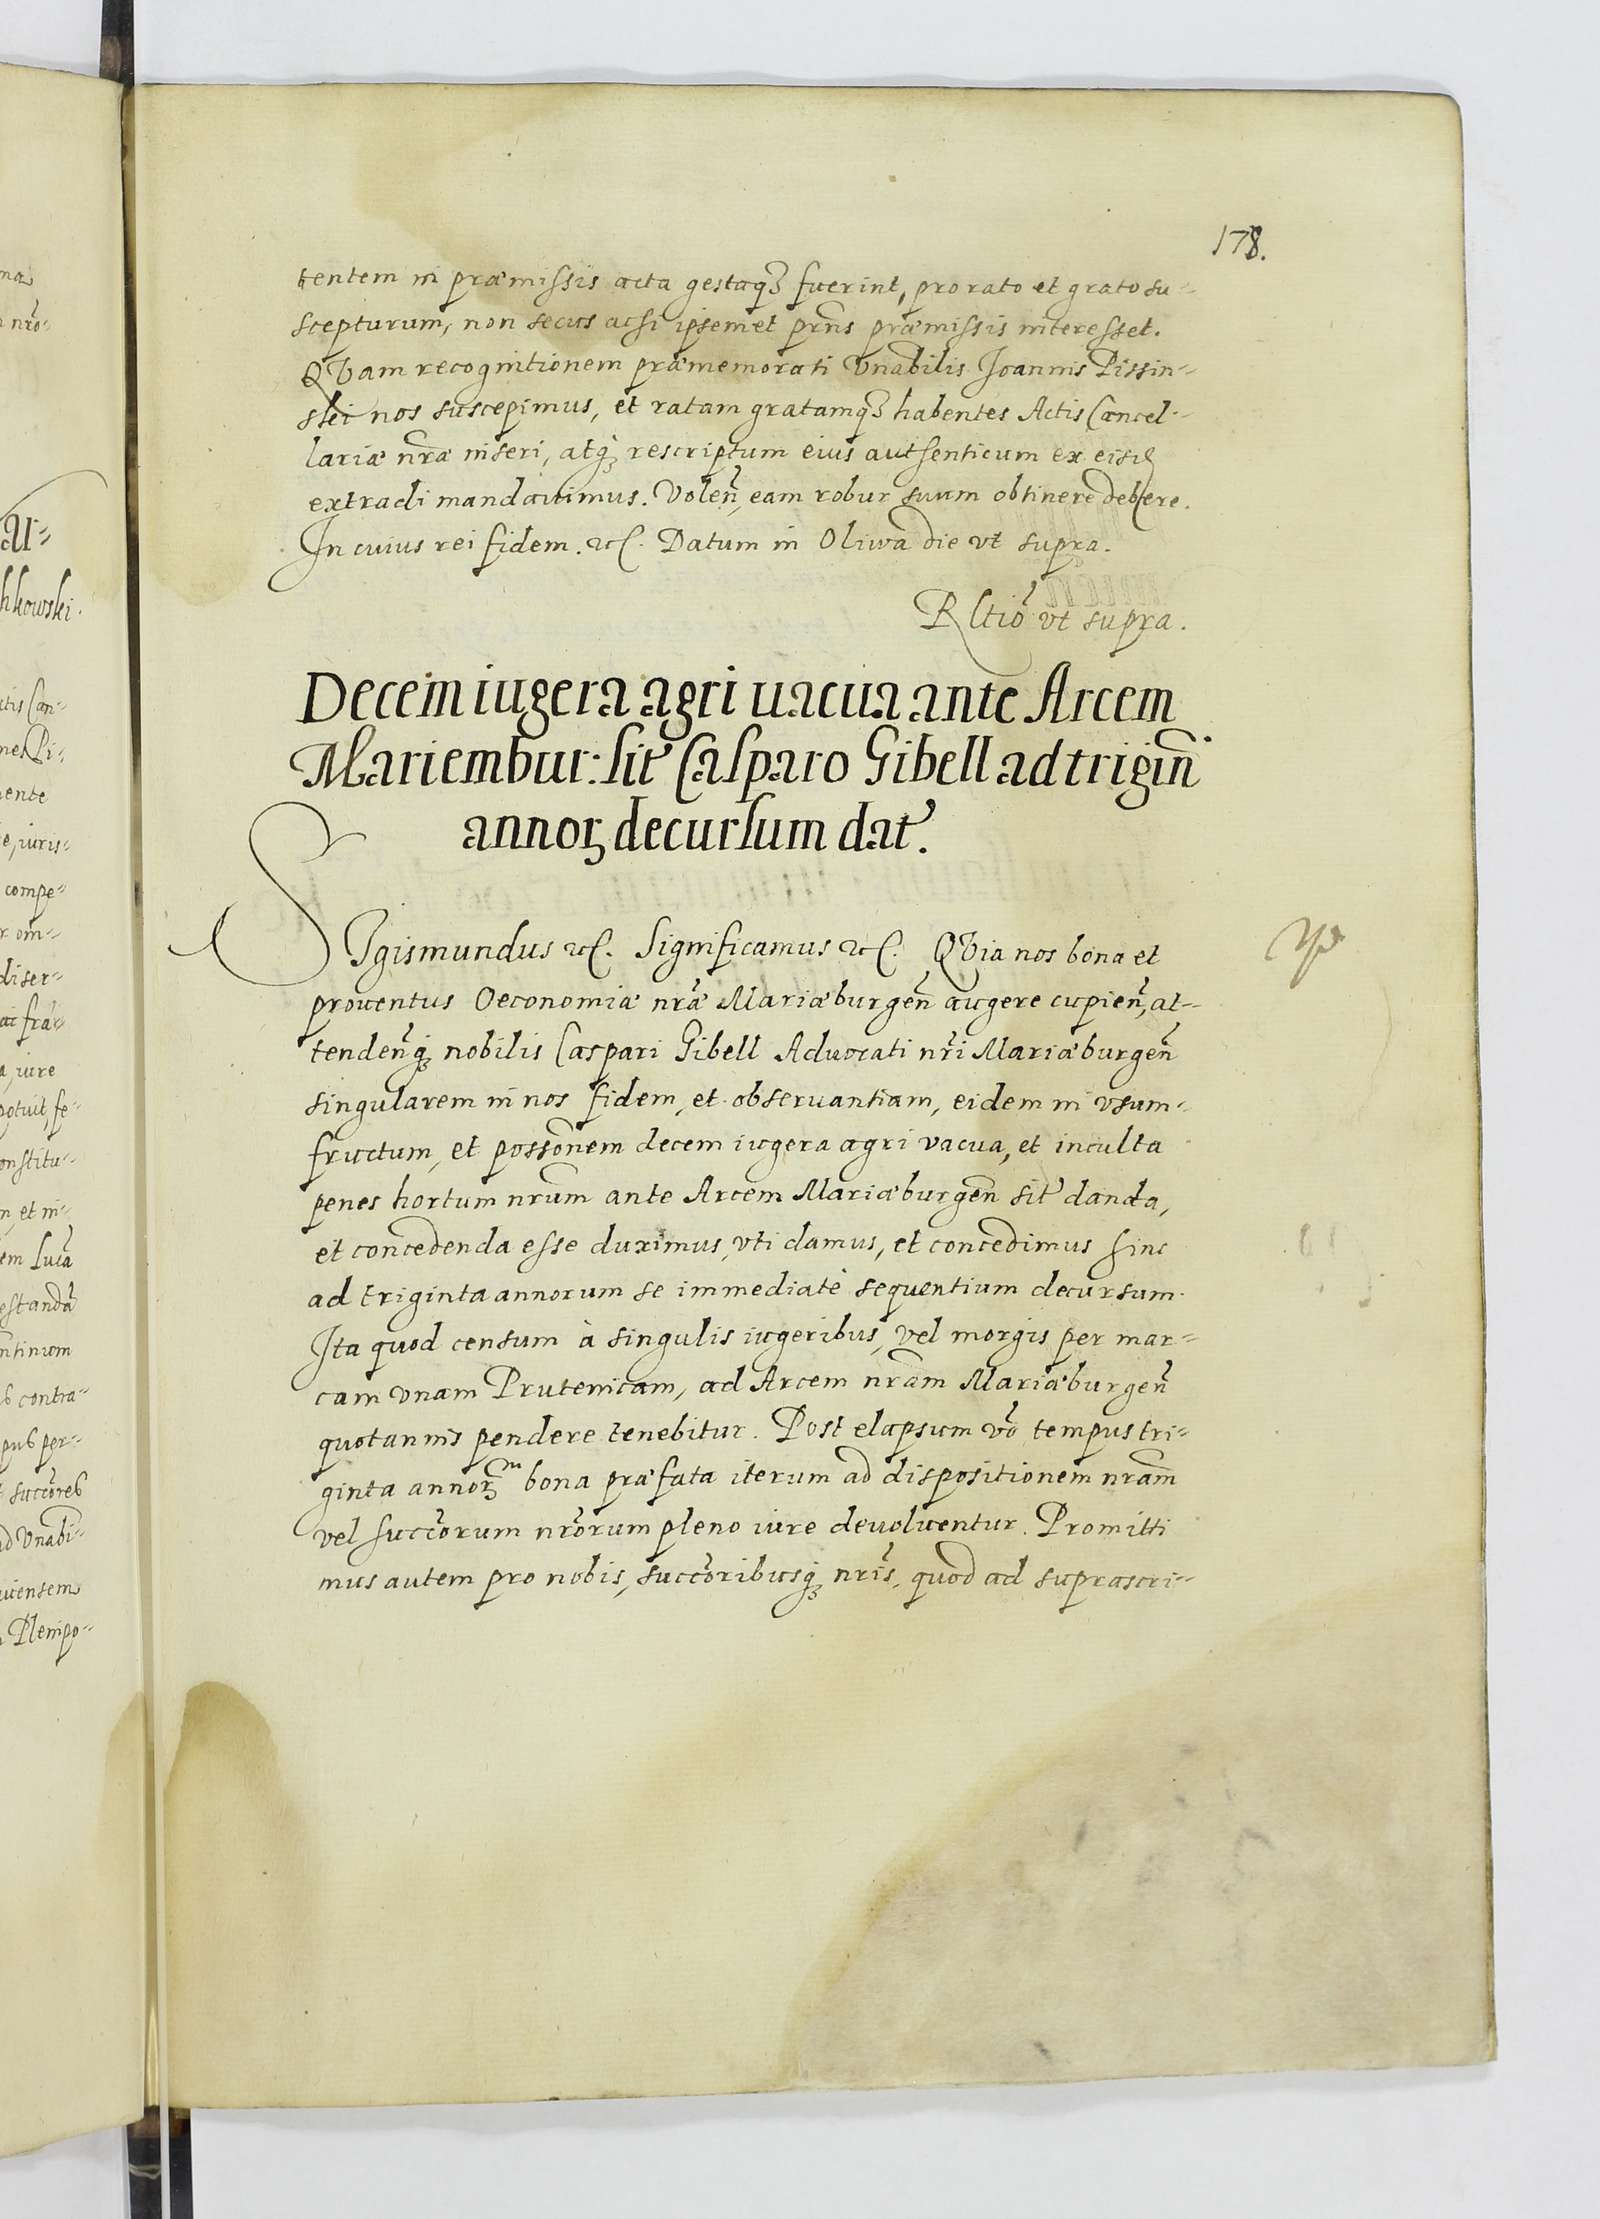 178.
tentem in præmissis acta gestaq₃ fuerint, pro rato et grato su-
scepturum, non secus acsi ipsemet prn̄s præmissis interesset.
QVam recognitionem præmemorati Vnabilis Joannis Pissin-
skei nos suscepimus, et ratam gratamq₃ habentes Actis Cancel-
lariæ nr̄æ inseri, atq₃ rescriptum eius authenticum ex eisd
extradi mandauimus. Volen̄, eam robur suum obtinere debere.
In cuius rei fidem. ⁊c. Datum in Oliwa die vt supra.
Rltiō vt supra.
Decem iugera agri uacua ante Arcem
Mariembur: sit̄ Casparo Gibell ad trigin̄
annoꝝ decursum dat̄.
SIgismundus ⁊c. Significamus ⁊c. QVia nos bona et
prouentus Oeconomiæ nr̄æ Mariæburgen̄ augere cupien̄, at-
tenden̄q₃ nobilis Caspari Gibell Aduocati nr̄i Mariæburgen̄
singularem in nos fidem, et obseruantiam, eidem in vsum-
fructum, et possōnem decem iugera agri vacua, et inculta
penes hortum nrūm ante Arcem Mariæburgen̄ sit̄ danda,
et concedenda esse duximus, vti damus, et concedimus hinc
ad triginta annorum se immediatè sequentium decursum.
Ita quod censum à singulis iugeribus, vel morgis per mar-
cam vnam Prutenicam, ad Arcem nrām Mariæburgen̄
quotannis pendere tenebitur. Post elapsum vō tempus tri-
ginta annoꝝ bona præfata iterum ad dispositionem nrām
vel succōrum nrōrum pleno iure deuoluentur. Promitti
mus autem pro nobis, succōribusq₃ nrīs, quod ad suprascri-